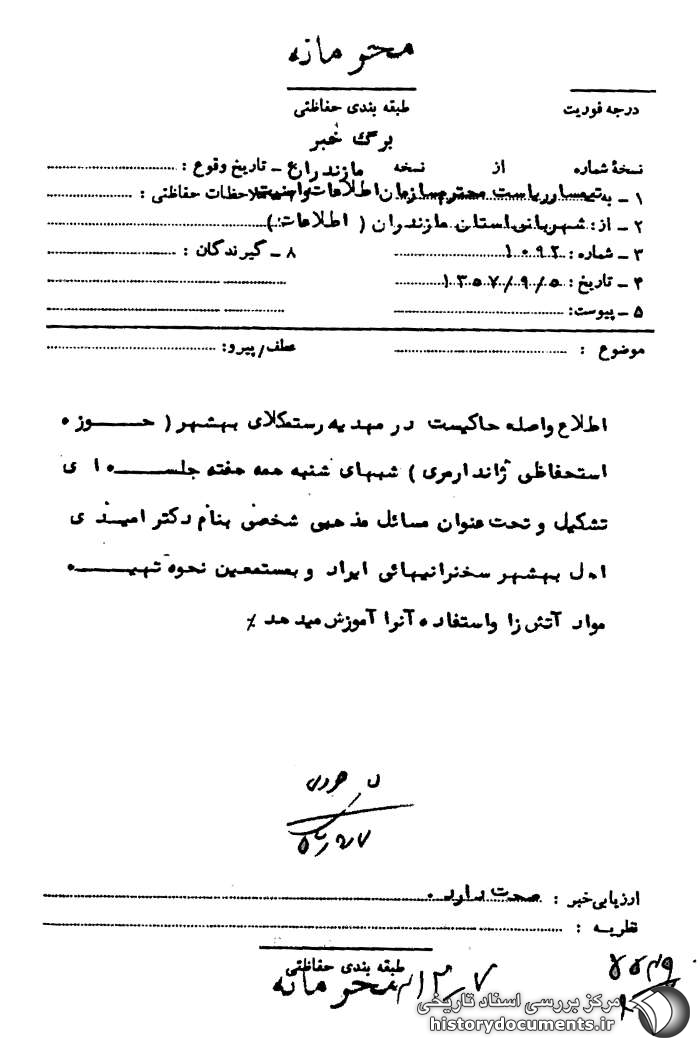 محرمانه
درجه فوریت
طبقه بندی حفاظتی
برگ خبر
نسخهٔ شماره از نسخه
مازندران
تاریخ وقوع :
۱ ــ به تیمسار ریاست محترم سازمان اطلاعات و امنیت
ملاحظات حفاظتی :
۲ ــ از : شهربانی استان مازندران ( اطلاعات )
۳ ــ شماره : ۱۰۹۲
۸ ــ گیرندگان :
۴ ــ تاریخ : ۱۳۵۷/۹/۵
۵ ــ پیوست :
موضوع :
عطف/پیرو :
اطلاع واصله حاکیست در مهدیه رستمکلای بهشهر ( حـــوزه
استحفاظی ژاندارمری ) شبهای شنبه همه هفته جلســـه ای
تشکیل و تحت عنوان مسائل مذهبی شخصی بنام دکتر امیـدی
اهل بهشهر سخنرانیهائی ایراد و بمستمعین نحوه تهیـــه
مواد آتش زا واستفاده آنرا آموزش میدهد ٪
ارزیابی خبر : صحت دارد .
نظریـه :
طبقه بندی حفاظتی
محرمانه
مرکز بررسی اسناد تاریخی
historydocuments.ir